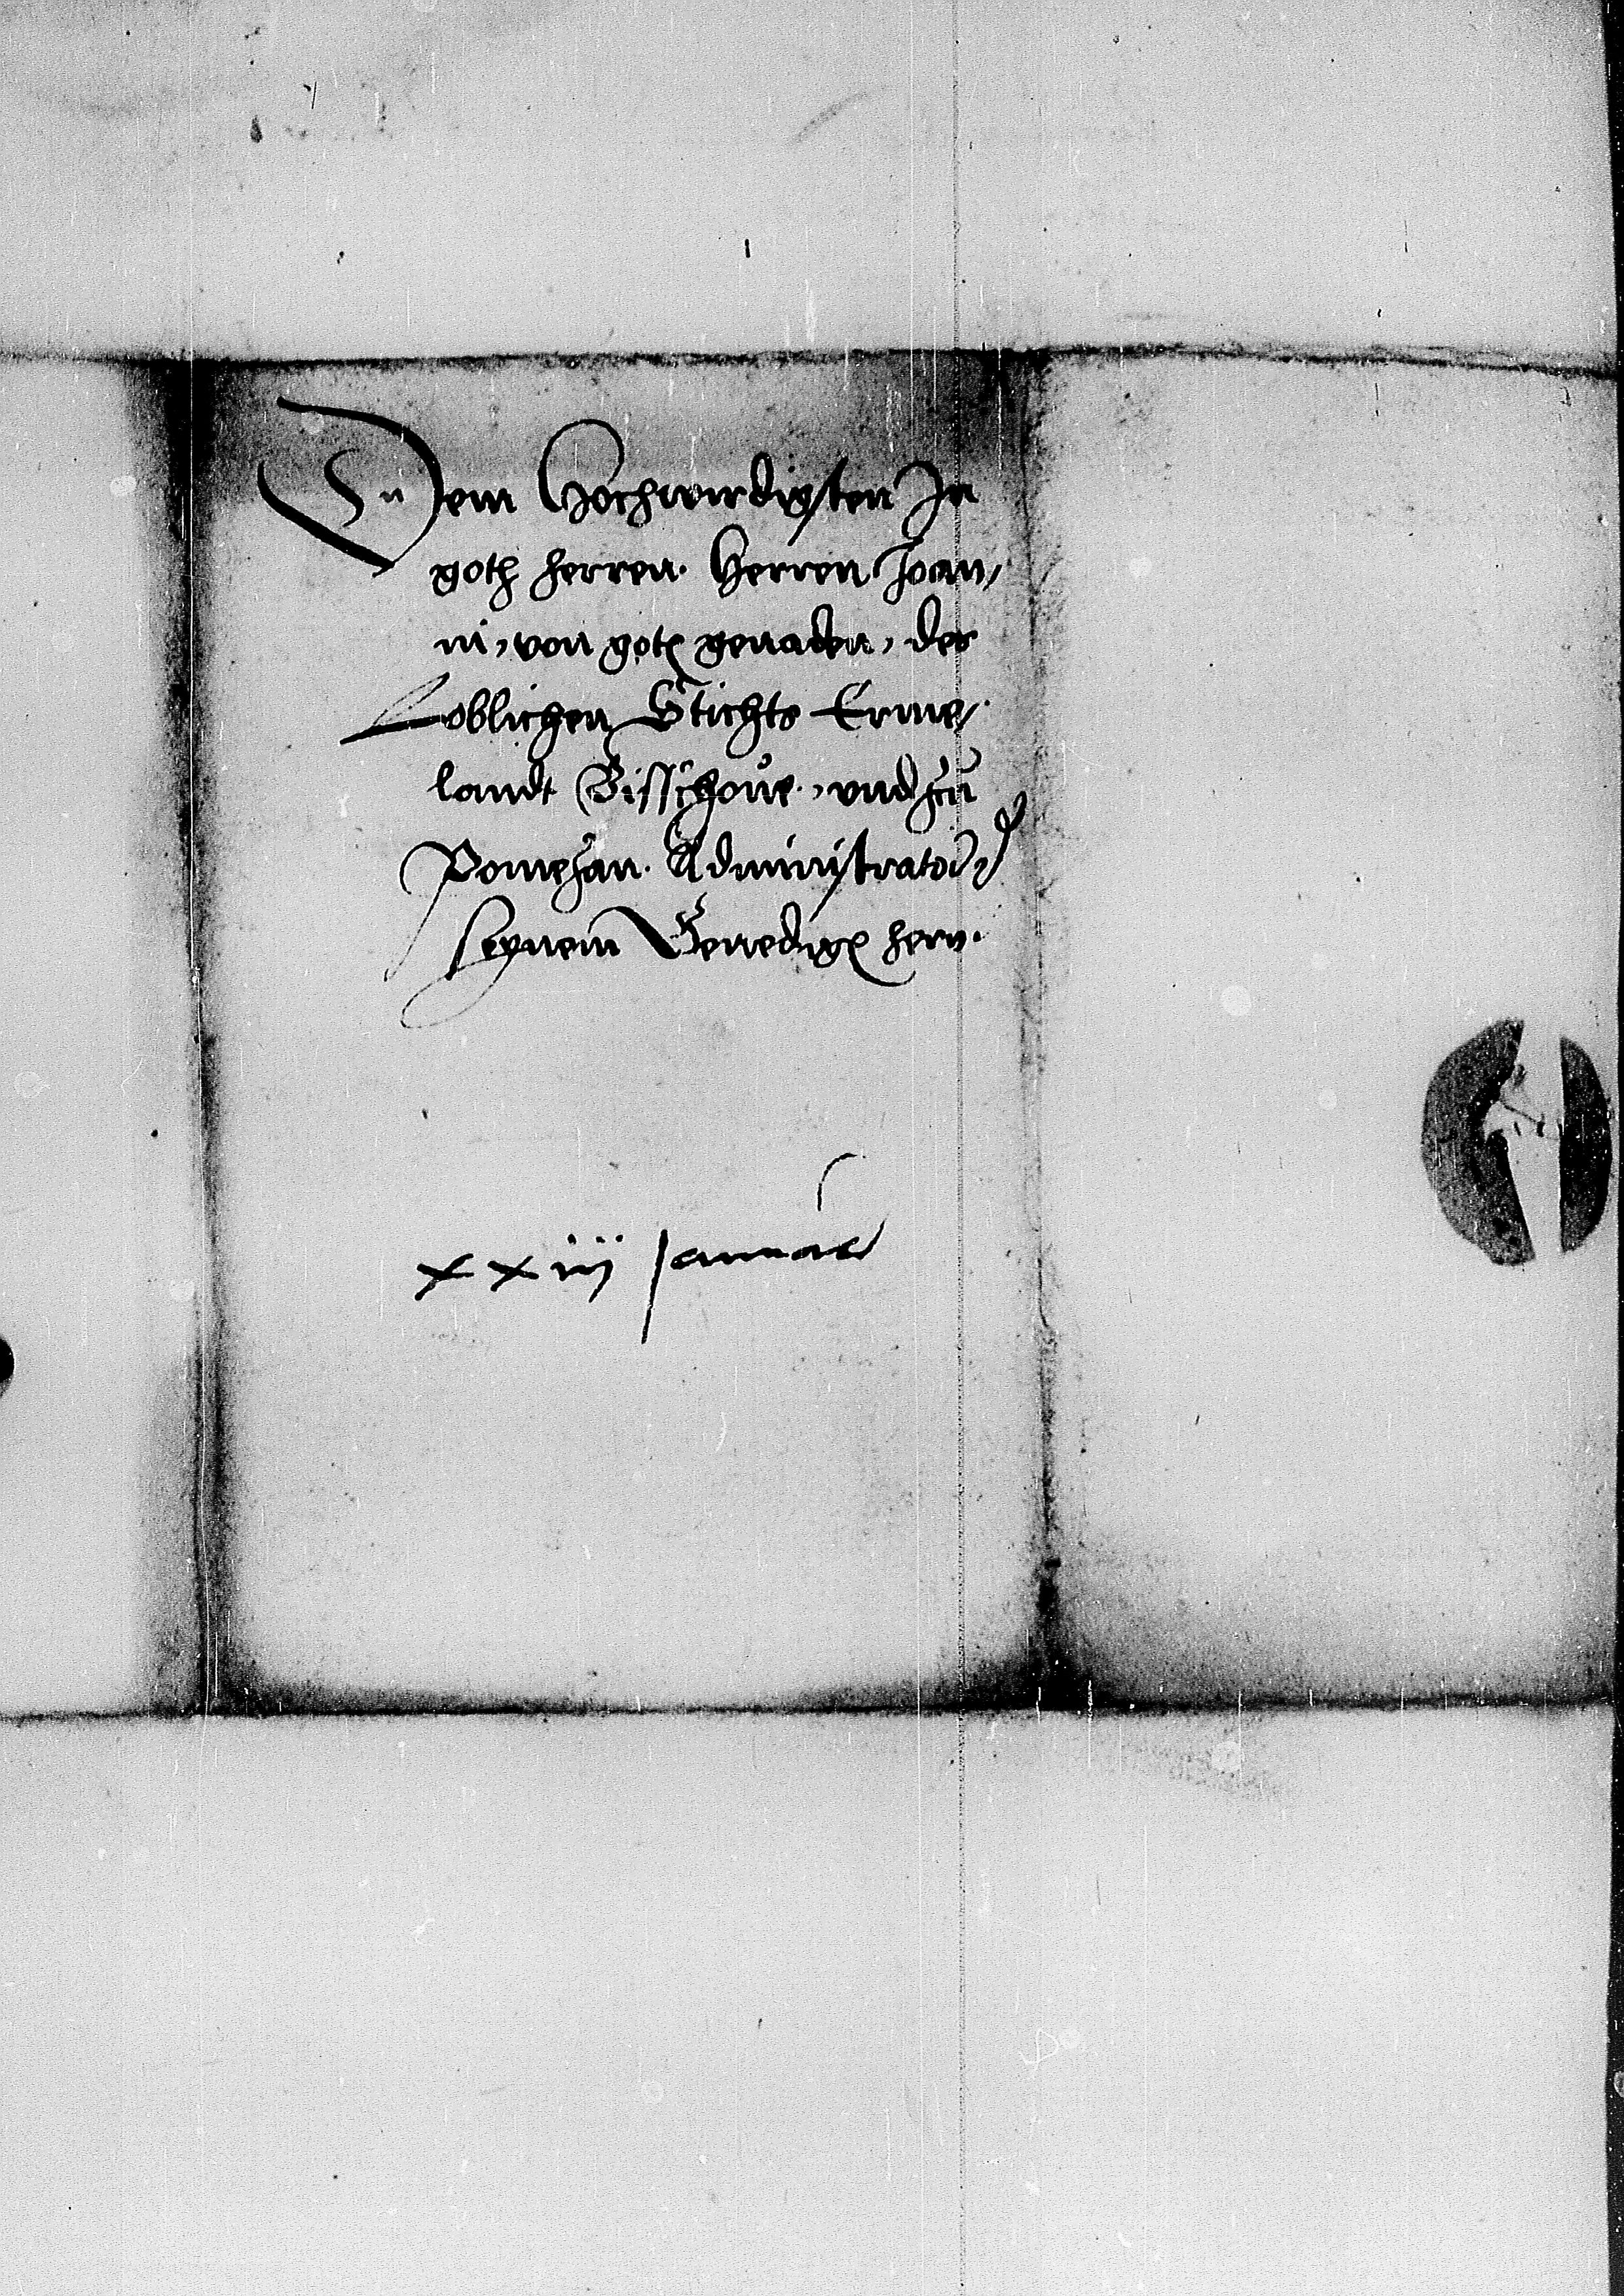 Dem Hochwirdigsten In
goth herren. Herren Joan/
ni, von gotes genaden, des
Loblichen Stichts Erme/
landt Bisschove., vnd zu
Pomesan. Administratori
seynem Genedigen hern.
xxiij Januarii